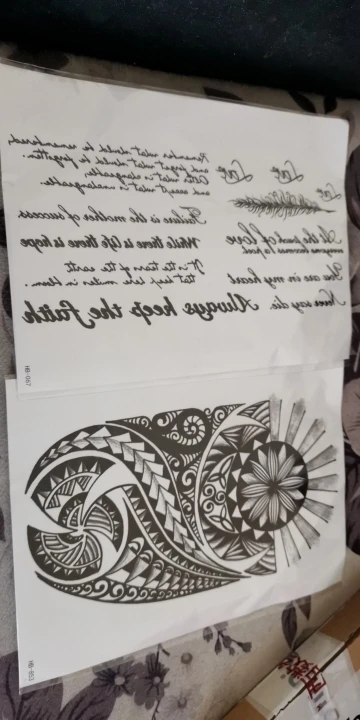 Love
Love
Love
At the touch of love
everyone becomes a poet
You are in my heart
Never say die
Remember what should be remembered,
and forget what should be forgotten.
Alter what is changeable,
and accept what is unchangeable.
Failure is the mother of success
While there is life there is hope
It is the tears of the earth
that keep here smiles in bloom.
Always keep the faith